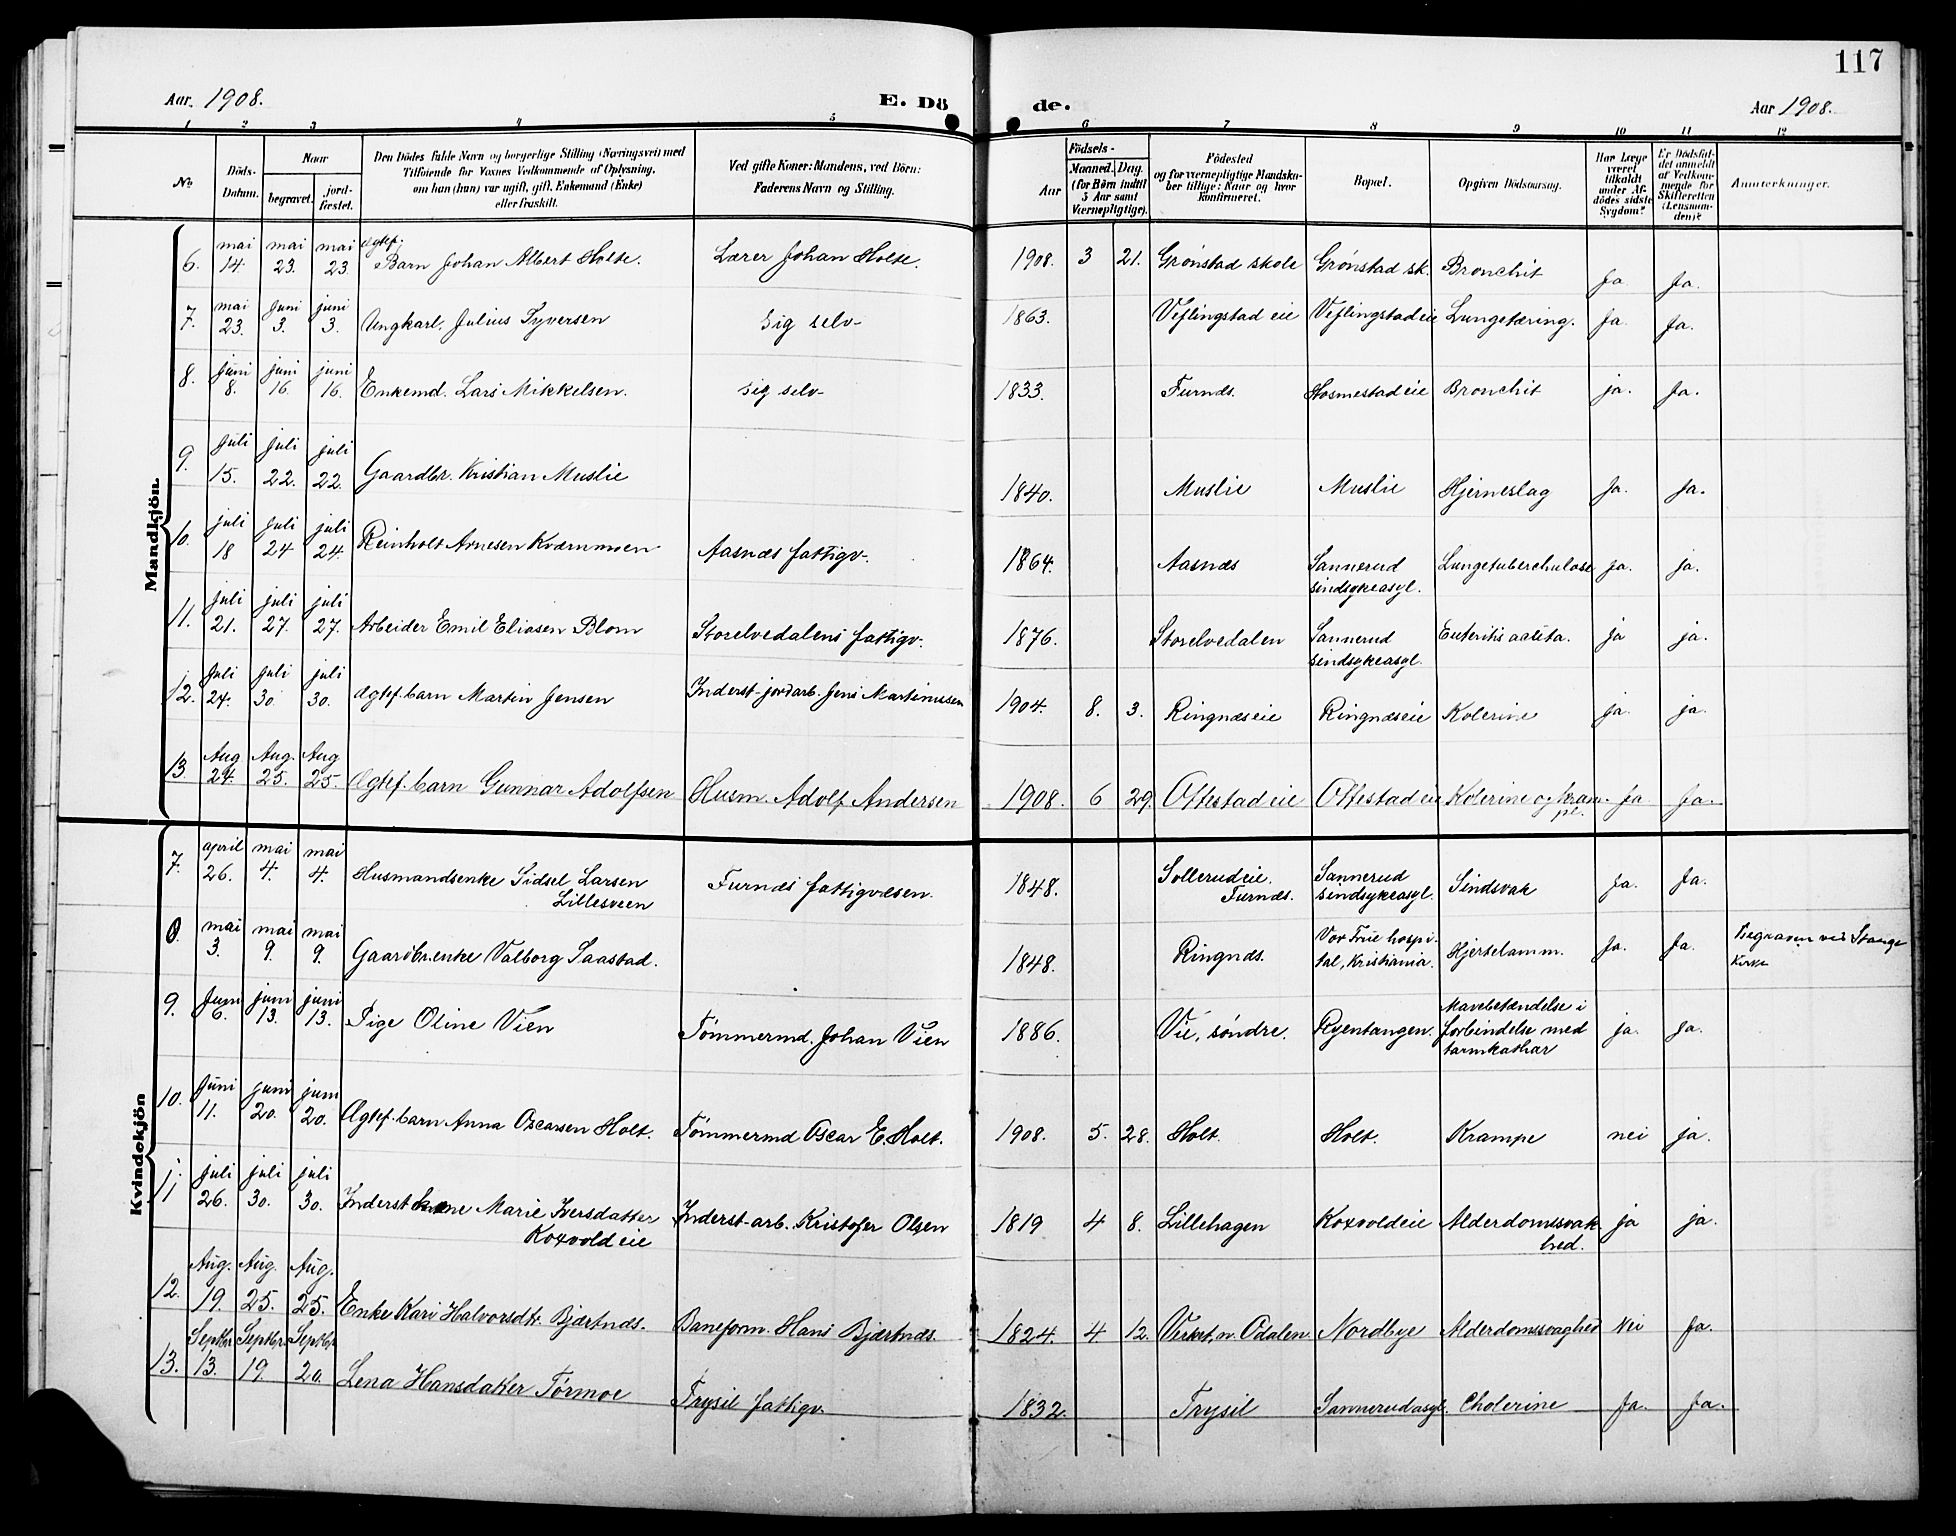 117
Aar. 1908. E. Dö
de. Aar 1908.
1 2 3 4 5 6 7 8 9 10 11 12
No. Döds-Datum. Naar begravet. jord-fæstet. Den Dödes fulde Navn og borgerlige Stilling (Næringsvei) med Tilföiende for Voxnes Vedkommende af Oplysning, om han (hun) var ugift, gift, Enkemand (Enke) eller fraskilt. Ved gifte Koner: Mandens, ved Börn: Faderens Navn og Stilling.
Födsels- Aar Maaned. Dag. (for Börn indtil 5 Aar samt Værnepligtige). Födested og for værnepligtige Mandska-ber tillige: Naar og hvor konfirmeret. Bopæl. Opgiven Dödsaarsag. Har Læge været tilkaldt under Af-dödes sidste Sygdom? Er Dödsfal-det anmeldt af Vedkom-mende for Skifteretten (Lensman-den)? Anmerkninger.
Mandkjön.
6. mai 14. mai 23. mai 23. Ægtef. Barn Johan Albert Holte. Lærer Johan Holte. 1908. 3 21. Grønstad skole Grønstad sk. Bronchit Ja. Ja.
7. mai 23. Juni 3. juni 3. Ungkarl. Julius Syversen Sig selv- 1863. Veflingstad eie Veflingstad eie Lungetæring. Ja. Ja.
8. juni 8. juni 16. juni 16. Enkemd. Lars Mikkelsen. sig selv- 1833. Furnæs. Hosmestad eie Bronchit ja. Ja.
9. Juli 15. juli 22. juli 22. Gaardbr. Kristian Muslie 1840. Muslie Muslie Hjerneslag Ja. Ja.
10. juli 18 juli 24 juli 24. Reinholt Arnesen Kværnmoen Aasnæs fattigv. 1864. Aasnæs Sannerud sindsykeasyl. Lungetuberchulose ja. ja.
11. Juli 21. juli 27. juli 27. Arbeider Emil Eliasen Blom Storelvedalens fattigv. 1876. Storelvedalen Sannerud sindsykeasyl. Enteritis acuta. ja ja.
12. Juli 24. juli 30. juli 30. Ægtef. barn Martin Jensen Inderst-jordarb. Jens Martinussen 1904. 8. 3. Ringnæseie Ringnæseie Kolerine ja. ja.
13. Aug 24. Aug. 25. Aug 25. Ægtef. barn Gunnar Adolfsen Husm. Adolf Andersen 1908. 6 29. Ottestad eie Ottestad eie Kolerine og kram-pe. Ja Ja.
Kvindekjön
7. april 26. mai 4. mai 4. Husmandsenke Sidsel Larsen Lillesveen Furnæs fattigvæsen. 1848. Sollerudeie. Furnæs. Sannerud sindsykeasyl. Sindsvak Ja. Ja.
8. mai 3. mai 9. mai 9. Gaardbr.enke Valborg Saastad. 1848. Ringnæs. Vor Frue hospi-tal, Kristiania. Hjertelamm. Ja. Ja. Begraven ved Stange Kirke
9. Juni 6. juni 13. juni 13. Pige Oline Vien Tømmermd. Johan Vien 1886. Vie, søndre. Ryentangen. Mavebetændelse i forbindelse med tarmkathar ja. Ja.
10. Juni 11. juni 20. juni 20. Ægtef. barn Anna Oscarsen Holt. Tømmermd Oscar E. Holt. 1908. 5. 28. Holt. Holt. Krampe nei ja.
11 juli 26. juli 30. juli 30. Inderst Marie Iversdatter Koxvold eie Inderst-arb. Kristofer Olsen 1819 4 8. Lillehagen Koxvoldeie Alderdomssvak-hed. ja ja.
12. Aug. 19. Aug. 25. Aug. 25. Enke Kari Halvorsdtr. Bjærtnæs. Baneform. Hans Bjærtnæs. 1824. 4 12. n. Odalen Nordbye Alderdomssvaghed Nei Ja.
13. Septbr 13. Septbr. 19. Septbr 20. Lena Hansdatter Tørmoe Trysil fattigv. 1832. Trysil Sannerudasyl. Cholerine Ja. Ja.